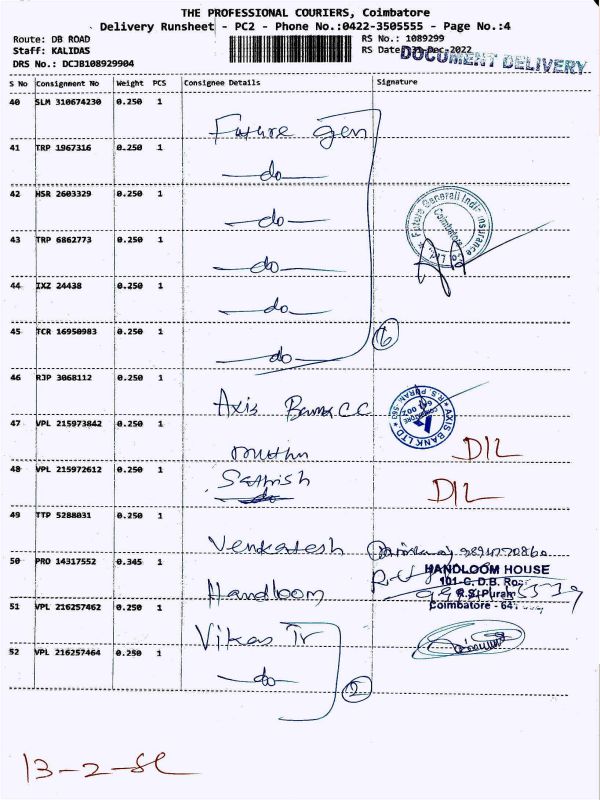 THE PROFESSIONAL COURIERS, Coimbatore
Delivery Runsheet - PC2 - Phone No.:0422-3505555 - Page No.:4
Route: DB ROAD RS No.: 1089299
Staff: KALIDAS RS Date: -Dec-2022
DOCUMENT DELIVERY
DRS No.: DCJB108929904
S No Consignment No Weight PCS Consignee Details Signature
40 SLM 310674230 0.250 1 Future Gen
41 TRP 1967316 0.250 1 do
42 HSR 2603329 0.250 1 do
Future Generali India Insurance Co. Ltd. Coimbatore
43 TRP 6862773 0.250 1 do
44 IXZ 24438 0.250 1 do
45 TCR 16950983 0.250 1 do
6
46 RJP 3068112 0.250 1 Axis Bank CC
AXIS BANK LTD R.S. PURAM COIMBATORE
47 VPL 215973842 0.250 1 Muthu D/L
48 VPL 215972612 0.250 1 Sathish D/L
do
49 TTP 5288031 0.250 1 Venkatesh
50 PRO 14317552 0.345 1 Handloom
HANDLOOM HOUSE
101-C, D.B. Road
R.S. Puram
Coimbatore - 641
51 VPL 216257462 0.250 1 Vikas Tr
52 VPL 216257464 0.250 1 do
2
13-2-SL